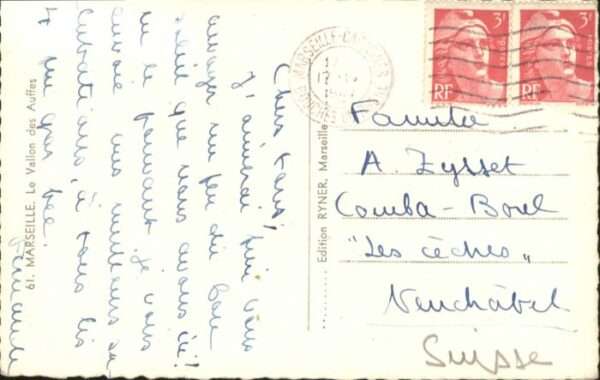 Chers tous!
J'aimerai bien vous
envoyer un peu du beau
soleil que nous avons ici!
ne le pouvant je vous
envoie mes meilleurs sa
lutations, à tous les
4 un gros bec.
61. MARSEILLE. Le Vallon des Auffes
Edition RYNER, Marseille
MARSEILLE
3F
3F
RF
RF
Famille
A. Zysset
Comba-Borel
"Les cèdres"
Neuchâtel
Suisse